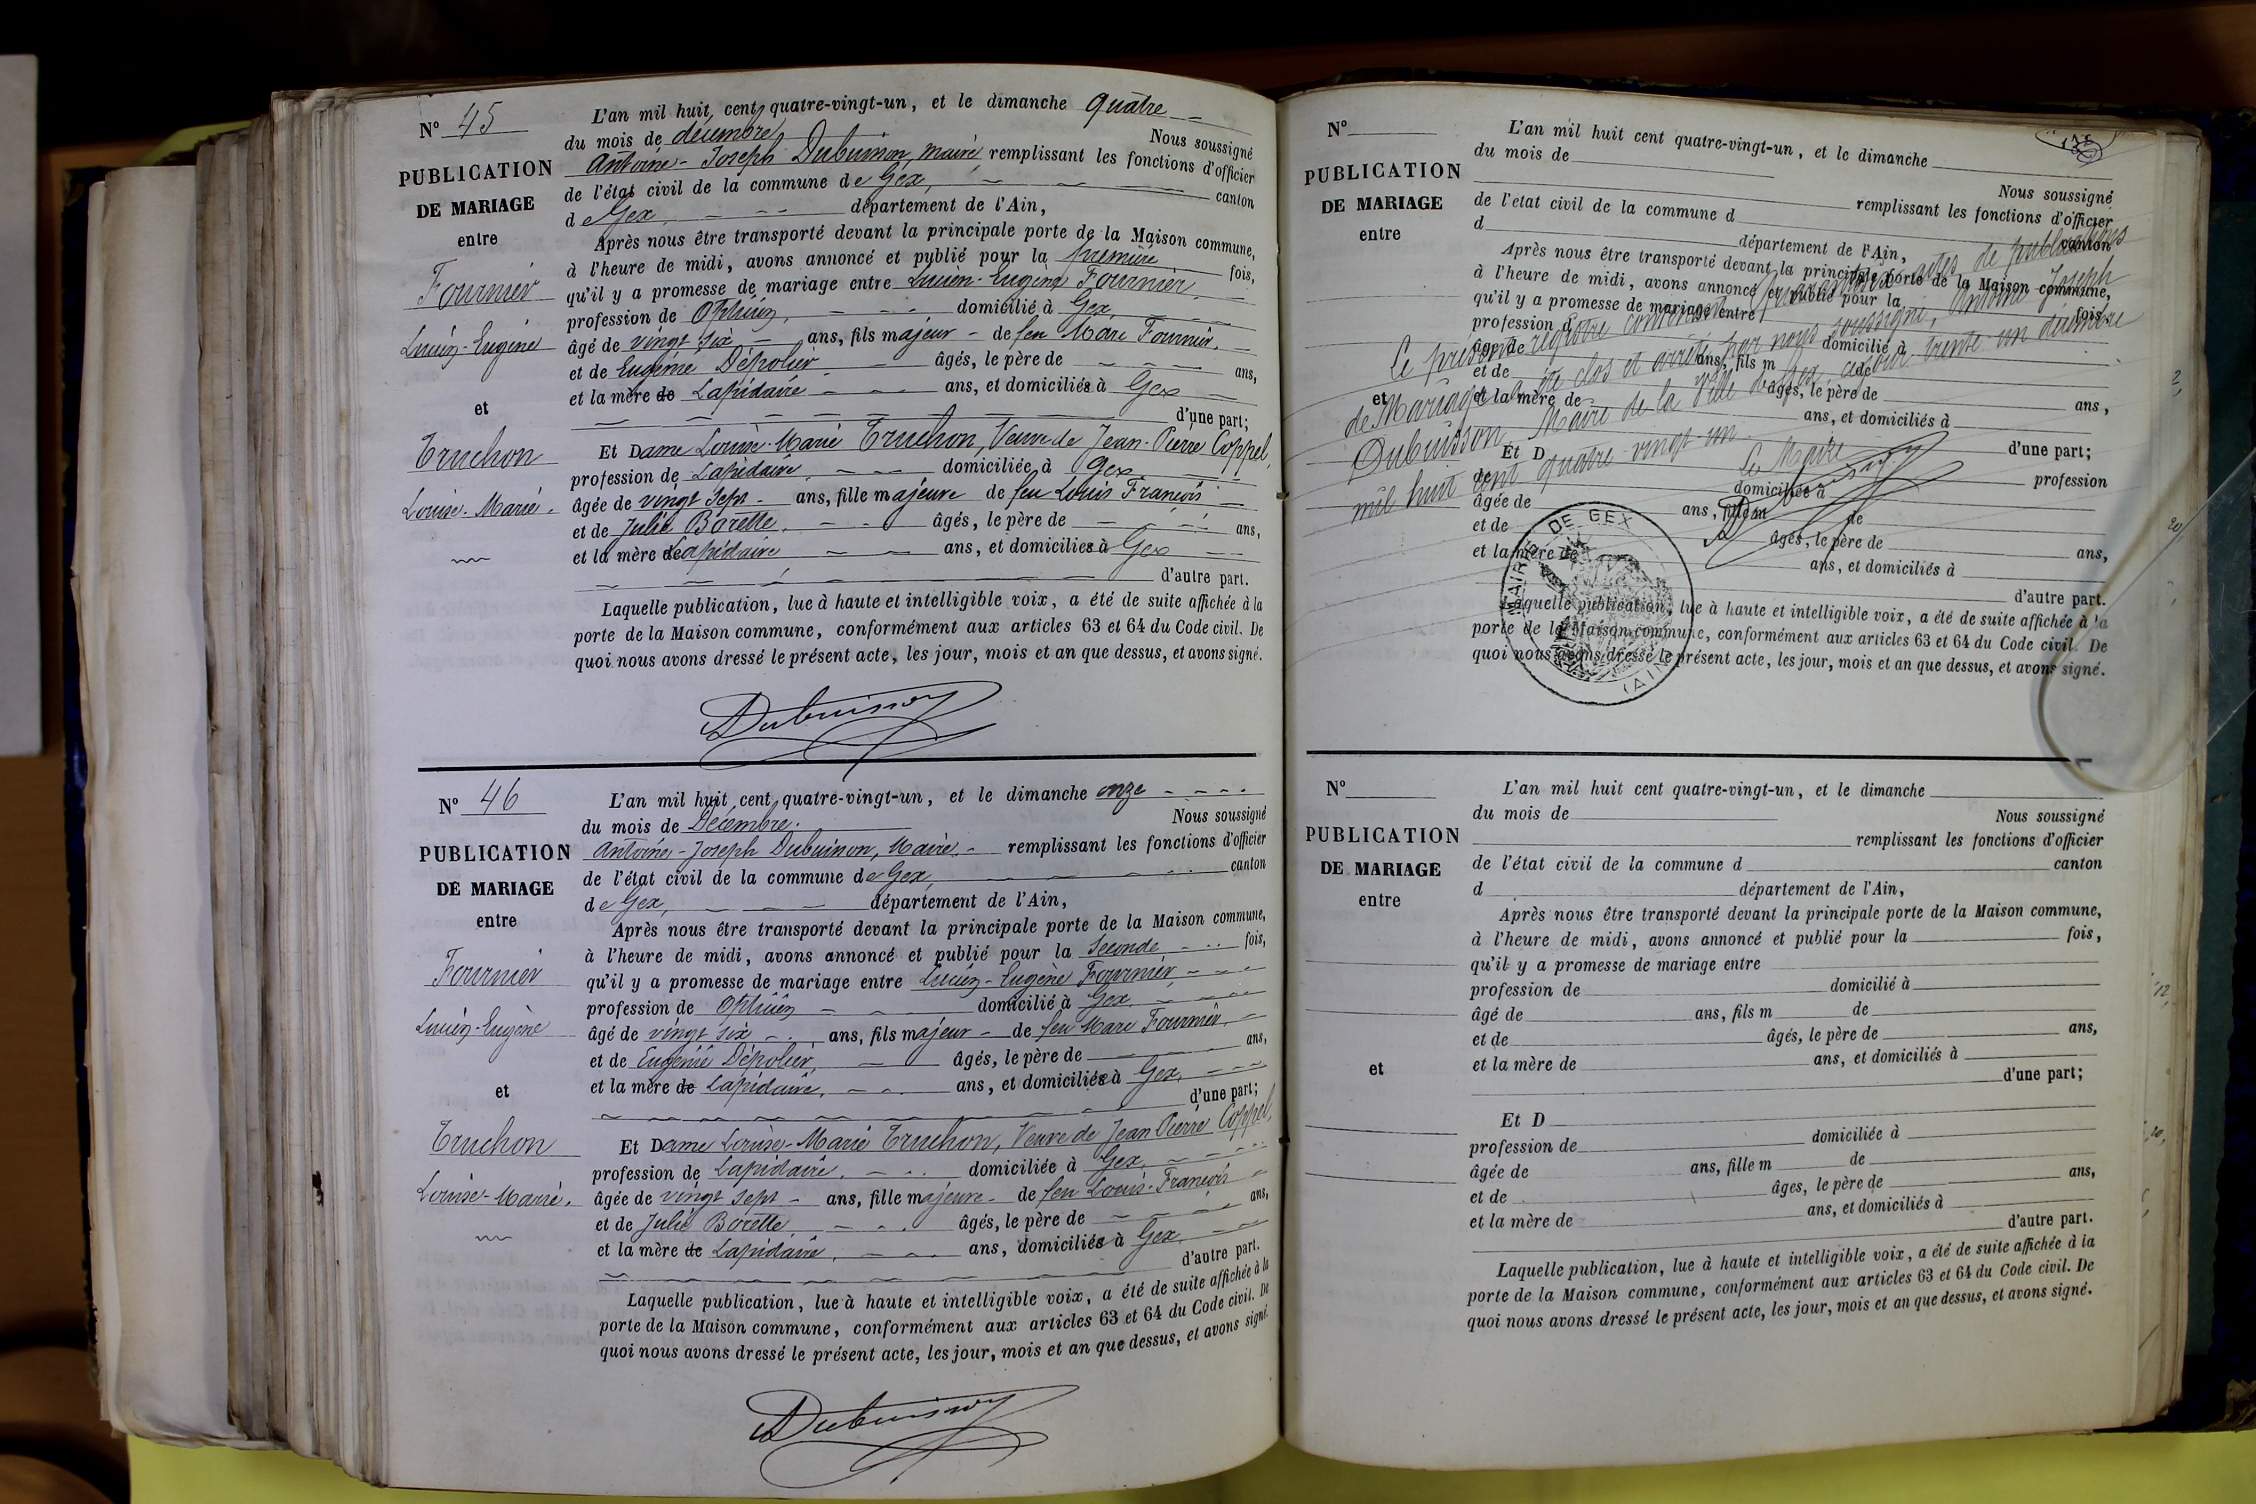 N° 45
PUBLICATION
DE MARIAGE
entre
Fournier
Lucien-Eugène
et
Truchon
Louise-Marie.
L'an mil huit cent quatre-vingt-un, et le dimanche quatre
du mois de décembre Nous soussigné
Antoine-Joseph Dubuisson, maire remplissant les fonctions d'officier
de l'état civil de la commune de Gex, canton
de Gex département de l'Ain,
Après nous être transporté devant la principale porte de la Maison commune,
à l'heure de midi, avons annoncé et publié pour la première fois,
qu'il y a promesse de mariage entre Lucien-Eugène Fournier,
profession de Opticien, domicilié à Gex,
âgé de vingt six ans, fils majeur de feu Marc Fournier,
et de Eugénie Dépolier âgés, le père de ans,
et la mère de Lapidaire ans, et domiciliés à Gex
d'une part;
Et Dame Louise-Marie Truchon, Veuve de Jean-Pierre Coppel,
profession de Lapidaire, domiciliée à Gex
âgée de vingt sept ans, fille majeure de feu Louis François
et de Julie Borette, âgés, le père de ans,
et la mère de Lapidaire ans, et domiciliés à Gex
d'autre part.
Laquelle publication, lue à haute et intelligible voix, a été de suite affichée à la
porte de la Maison commune, conformément aux articles 63 et 64 du Code civil. De
quoi nous avons dressé le présent acte, les jour, mois et an que dessus, et avons signé.
Dubuisson
N° 46
PUBLICATION
DE MARIAGE
entre
Fournier
Lucien-Eugène
et
Truchon
Louise-Marie.
L'an mil huit cent quatre-vingt-un, et le dimanche onze
du mois de Décembre. Nous soussigné
Antoine-Joseph Dubuisson, Maire, remplissant les fonctions d'officier
de l'état civil de la commune de Gex, canton
de Gex, département de l'Ain,
Après nous être transporté devant la principale porte de la Maison commune,
à l'heure de midi, avons annoncé et publié pour la seconde fois,
qu'il y a promesse de mariage entre Lucien-Eugène Fournier,
profession de Opticien domicilié à Gex,
âgé de vingt six ans, fils majeur de feu Marc Fournier,
et de Eugénie Dépolier, âgés, le père de ans,
et la mère de Lapidaire, ans, et domiciliés à Gex,
d'une part;
Et Dame Louise-Marie Truchon, Veuve de Jean Pierre Coppel,
profession de Lapidaire. domiciliée à Gex,
âgée de vingt sept ans, fille majeure de feu Louis-François
et de Julie Borette, âgés, le père de ans,
et la mère de Lapidaire, ans, domiciliés à Gex
d'autre part.
Laquelle publication, lue à haute et intelligible voix, a été de suite affichée à la
porte de la Maison commune, conformément aux articles 63 et 64 du Code civil. De
quoi nous avons dressé le présent acte, les jour, mois et an que dessus, et avons signé.
Dubuisson
N°
PUBLICATION
DE MARIAGE
entre
et
L'an mil huit cent quatre-vingt-un, et le dimanche
du mois de
Nous soussigné
remplissant les fonctions d'officier
de l'état civil de la commune d canton
d département de l'Ain,
Après nous être transporté devant la principale porte de la Maison commune,
à l'heure de midi, avons annoncé et publié pour la fois,
qu'il y a promesse de mariage entre
profession d domicilié à
âgé de ans, fils m de
et de âgés, le père de ans,
et la mère de ans, et domiciliés à
d'une part;
Et D profession
de domiciliée à
âgée de ans, fille m de
et de âgés, le père de ans,
et la mère de ans, et domiciliés à
d'autre part.
Laquelle publication, lue à haute et intelligible voix, a été de suite affichée à la
porte de la Maison commune, conformément aux articles 63 et 64 du Code civil. De
quoi nous avons dressé le présent acte, les jour, mois et an que dessus, et avons signé.
Le présent registre contenant actes de publications
de Mariage a été clos et arrêté par nous soussigné, Antoine Joseph
Dubuisson Maire de la Ville de Gex, ce jour trente un décembre
mil huit cent quatre vingt un
Le Maire
MAIRIE DE GEX
(AIN)
N°
PUBLICATION
DE MARIAGE
entre
et
L'an mil huit cent quatre-vingt-un, et le dimanche
du mois de Nous soussigné
remplissant les fonctions d'officier
de l'état civil de la commune d canton
d département de l'Ain,
Après nous être transporté devant la principale porte de la Maison commune,
à l'heure de midi, avons annoncé et publié pour la fois,
qu'il y a promesse de mariage entre
profession de domicilié à
âgé de ans, fils m de
et de âgés, le père de ans,
et la mère de ans, et domiciliés à
d'une part;
Et D
profession de domiciliée à
âgée de ans, fille m de
et de âges, le père de ans,
et la mère de ans, et domiciliés à
d'autre part.
Laquelle publication, lue à haute et intelligible voix, a été de suite affichée à la
porte de la Maison commune, conformément aux articles 63 et 64 du Code civil. De
quoi nous avons dressé le présent acte, les jour, mois et an que dessus, et avons signé.